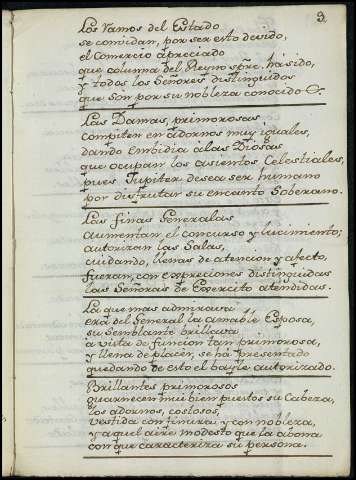 9.
Los Ramos del Estado
se convidan, por ser esto devido,
el Comercio apreciado
que columna del Reyno spre. há sido,
y todos los Señores distinguidos
que Son por su nobleza conocidos.
Las Damas, primorosas
compiten en adornos muy iguales,
dando Embidia alas Diosas
que ocupan los asientos Celestiales,
pues Jupiter desea ser humano
por disfrutar su encanto Soberano.
Las finas Generalas
aumentan el concurso y lucimiento;
autorizan las Salas,
cuidando, llenas de atencion y afecto,
fueran, con expreciones distinguidas
las Señoras de Exercito atendidas.
La que mas admirava
era del General la amable Esposa,
su Semblante brillava
a vista de funcion tan primorosa,
y llena de placer, se há presentado
quedando de esto el bayle autorizado.
Brillantes primorosos
guarnecen mui bien puestos su Cabeza,
los adornos, costosos,
vestida con finura y con nobleza,
y aquel aire modesto que la abona
con que caracteriza su persona.